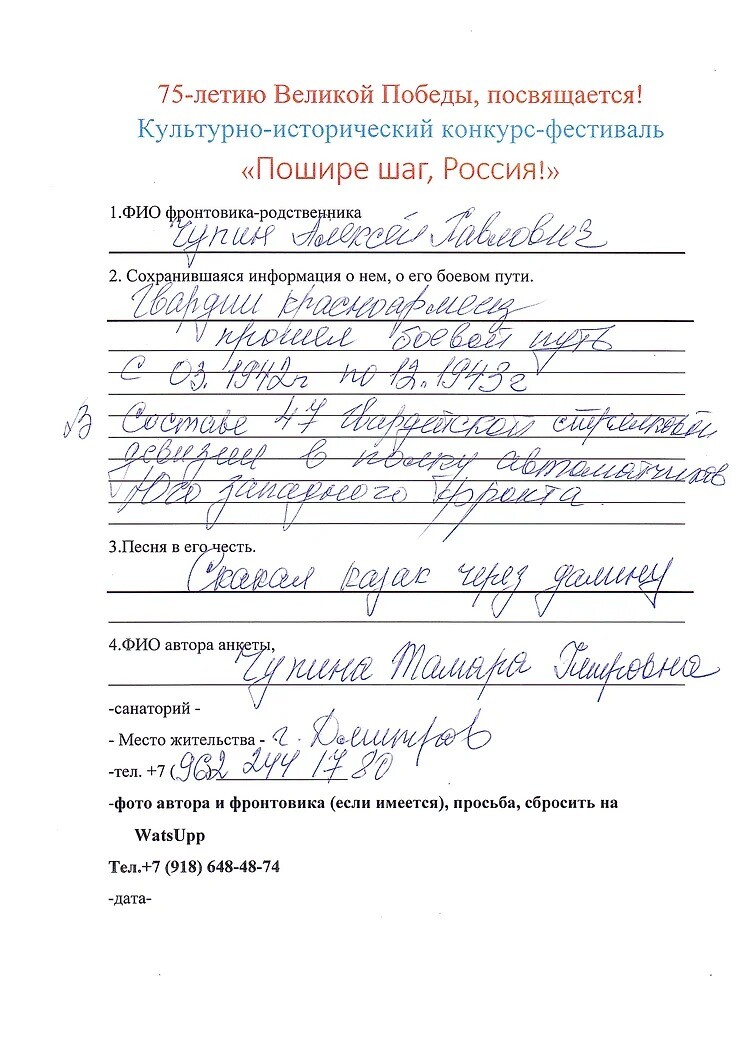 75-летию Великой Победы, посвящается!
Культурно-исторический конкурс-фестиваль
«Пошире шаг, Россия!»
1.ФИО фронтовика-родственника
Чупин Алексей Павлович
2. Сохранившаяся информация о нем, о его боевом пути.
Гвардии красноармеец
прошел боевой путь
С 03.1942г по 12.1943г
В Составе 47 Гвардейской стрелковой
девизии в полку автоматчиков
Юго Западного Фронта
3.Песня в его честь.
Скакал казак через далину
4.ФИО автора анкеты,
Чупина Тамара
-санаторий -
- Место жительства - г. Дмитров
-тел. +7 (962 244 17 80
-фото автора и фронтовика (если имеется), просьба, сбросить на
WatsUpp
Тел.+7 (918) 648-48-74
-дата-